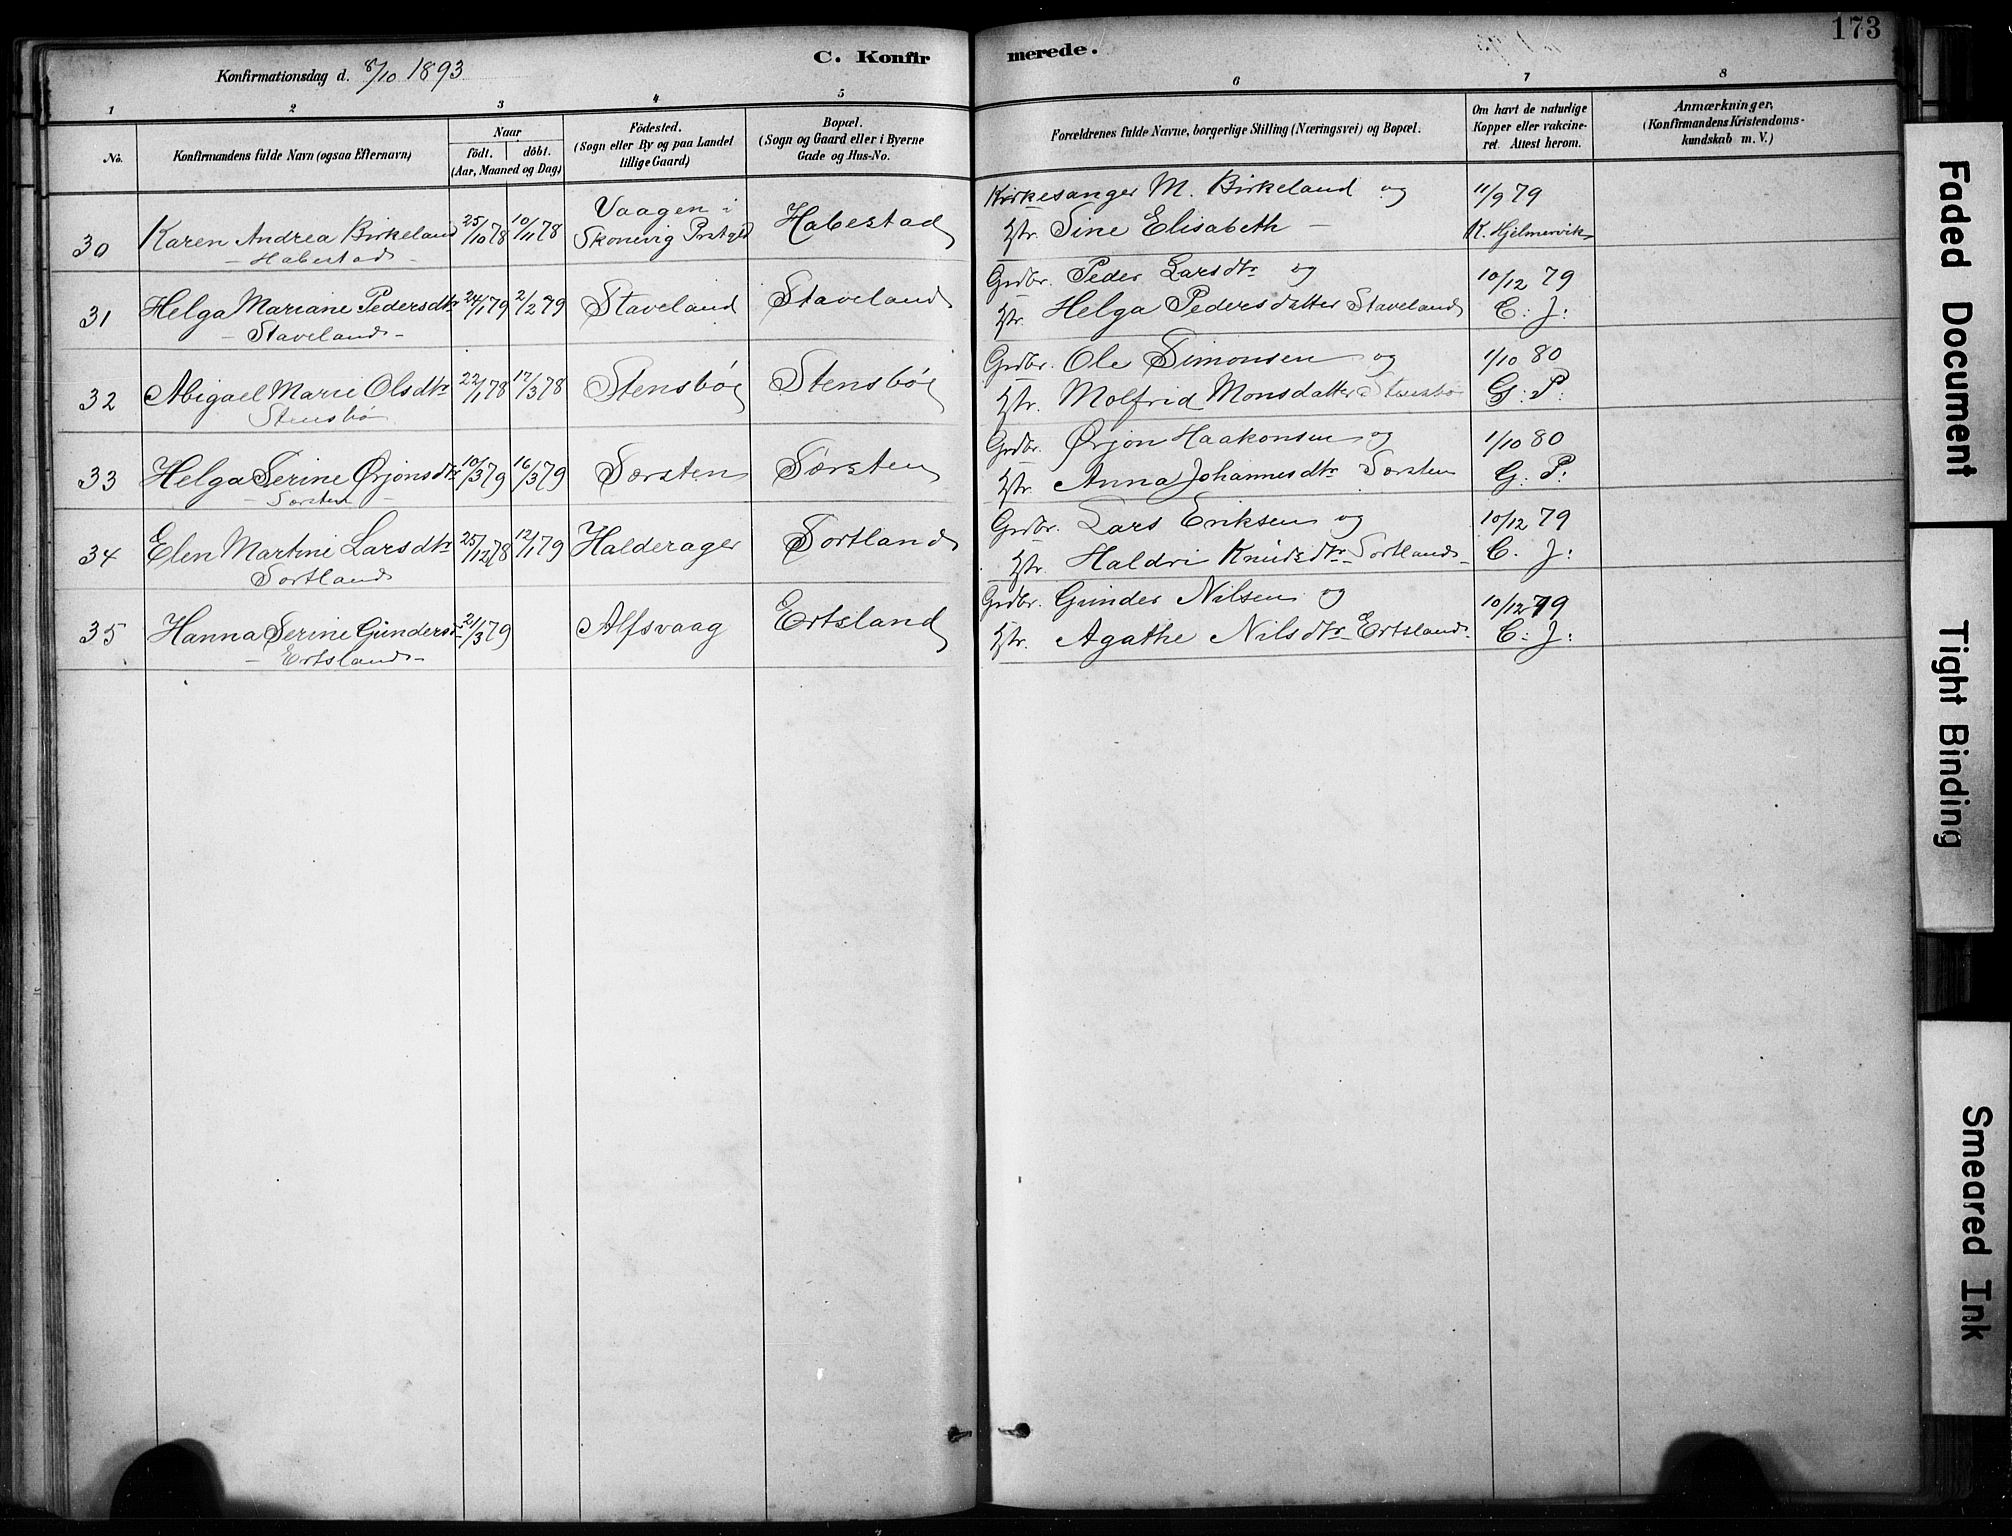 173
C. Konfirmerede.
Konfirmationsdag d. 8/10 1893
1 2 3 4 5 6 7 8
No.
Konfirmandens fulde Navn (ogsaa Efternavn)
Naar
födt. döbt.
(Aar, Maaned og Dag)
Födested.
(Sogn eller By og paa Landet
tillige Gaard)
Bopæl.
(Sogn og Gaard eller i Byerne
Gade og Hus-No.
Forældrenes fulde Navne, borgerlige Stilling (Næringsvei) og Bopæl.
Om havt de naturlige
Kopper eller vakcine-
ret. Attest herom.
Anmærkninger.
(Konfirmandens Kristendoms-
kundskab m. V.)
30 Karen Andrea Birkeland 25/10 78 10/11 78 Vaagen i Habestad Kirkesanger M. Birkeland og 11/9 79
- Habestad - Skonevig Prstgld Htr. Sine Elisabeth - K. Hjelmervik
31 Helga Mariane Pedersdtr 24/1 79 2/2 79 Staveland Staveland Grdbr. Peder Larsdtr og 10/12 79
- Staveland - Htr. Helga Pedersdatter Staveland C. J:
32 Abigael Marie Olsdtr 22/1 78 17/3 78 Stensbø Stensbø Grdbr. Ole Simonsen og 1/10 80
Stensbø Htr. Molfrid Monsdatter Stensbø G: P:
33 Helga Serine Ørjonsdtr 10/3 79 16/3 79 Særsten Særsten Grdbr. Ørjon Haakonsen og 1/10 80
- Særsten Htr. Anna Johannesdtr Særsten G: P:
34 Elen Martine Larsdtr 25/12 78 12/1 79 Halderager Sortland Grdbr. Lars Eriksen og 10/12 79
Sortland Htr. Haldri Knudsdtr Sortland C. J:
35 Hanna Serine Gundersdtr 21/3 79 Alfsvaag Ertsland Grdbr. Gunder Nilsen og 10/12 79
- Ertsland - Htr. Agathe Nilsdtr Ertsland C: J:
Faded Document
Tight Binding
Smeared Ink